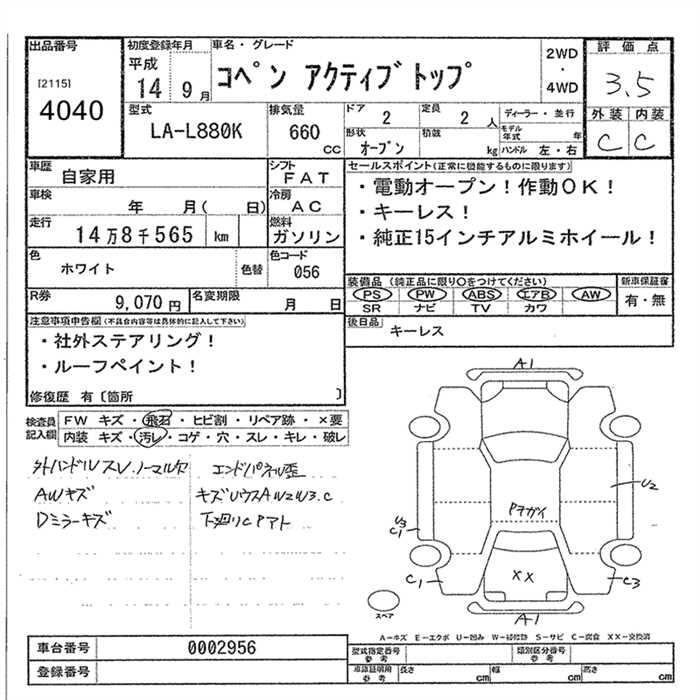 出品番号
[2115]
4040
初度登録年月
平成
14 9 月
車名・グレード
コペン アクティブトップ
2WD
・
4WD
評価点
3.5
型式
LA-L880K
排気量
660
CC
ドア
2
定員
2 人
ディーラー・並行
モデル年式 年
形状
オープン
積載
kg
ハンドル 左・右
外装 内装
C C
車歴
自家用
シフト
FAT
車検
年 月( 日)
冷房
AC
走行
14万8千565 km
燃料
ガソリン
色
ホワイト
色替
色コード
056
R券
9,070 円
名変期限
月 日
セールスポイント(正常に機能するものに限ります)
・電動オープン!作動OK!
・キーレス!
・純正15インチアルミホイール!
装備品 (純正品に限り○をつけてください)
PS PW ABS エアB AW
SR ナビ TV カワ
新車保証書
有・無
後日品
キーレス
注意事項申告欄(不具合内容等は具体的に記入して下さい)
・社外ステアリング!
・ルーフペイント!
修復歴 有〔箇所 〕
検査員記入欄
FW キズ・飛石・ヒビ割・リペア跡・×要
内装 キズ・汚レ・コゲ・穴・スレ・キレ・破レ
外ハンドルスレ.ノーマル欠
エンドパネル歪
AWキズ
Dミラーキズ
下廻りCPアト
A1
U2
U3
C1
Pヲガイ
C1
XX
C3
A1
スペア
A-キズ E-エクボ U-凹み W-補修跡 S-サビ C-腐食 XX-交換済
車台番号
0002956
登録番号
型式指定番号
参考
類別区分番号
参考
車庫証明用
参考
長さ cm
幅 cm
高さ cm